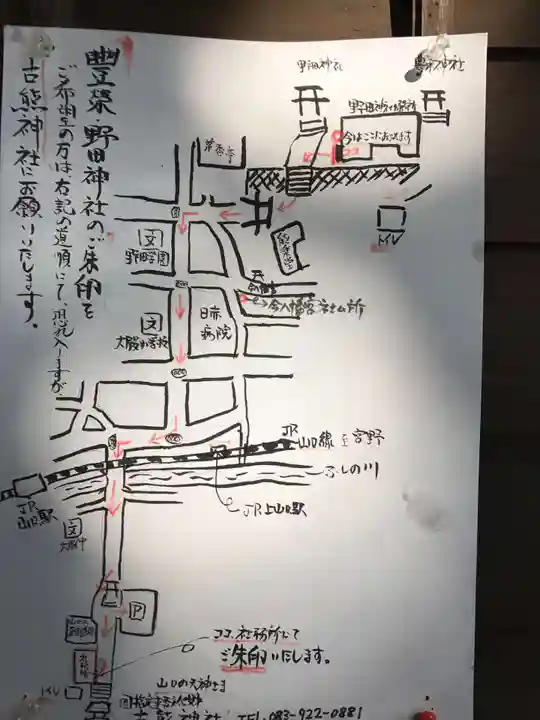 豐榮・野田神社のご朱印を
ご希望の方は右記の道順にて、恐れ入りますが
古熊神社にお願いいたします。
野田神社
豊栄神社
野田神社社務所
今はここにおります
ココ
トイレ
能楽堂
文
野田学園
今八幡宮
今八幡宮社ム所
日赤
病院
文
大殿小学校
JR
山口線
至宮野
ふしの川
JR上山口駅
JR
山口駅
文
大殿中
P
ココ、社務所にて
ご朱印いたします。
トイレ
山口の天神さま
古熊神社
TEL.083-922-0881